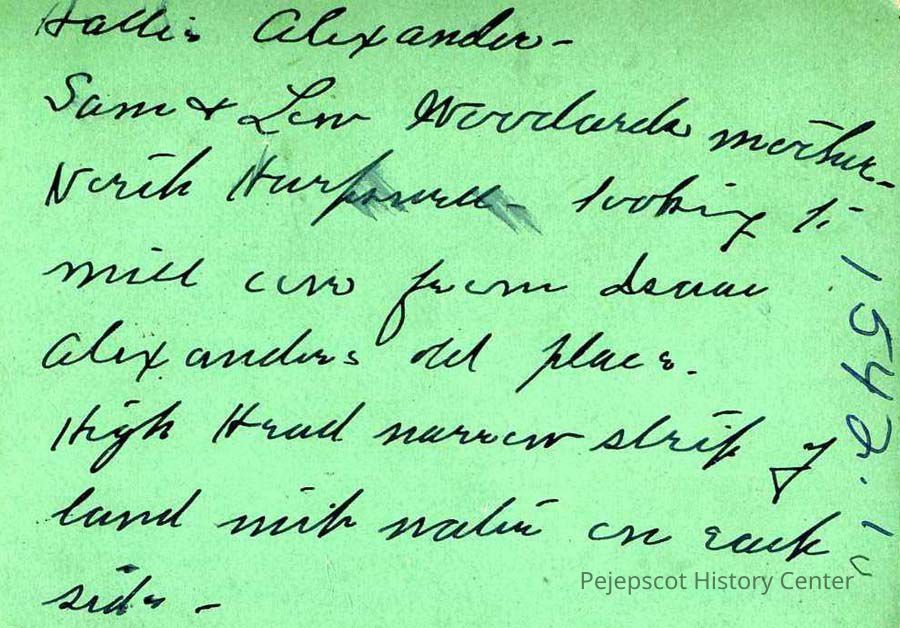 Hattie Alexander -
Sam & Lew Woodards mother -
North Harpswell - looking to
mill cove from Isaac
Alexanders old place.
High Head narrow strip of
land with water on each
side -
1542.1c
Pejepscot History Center